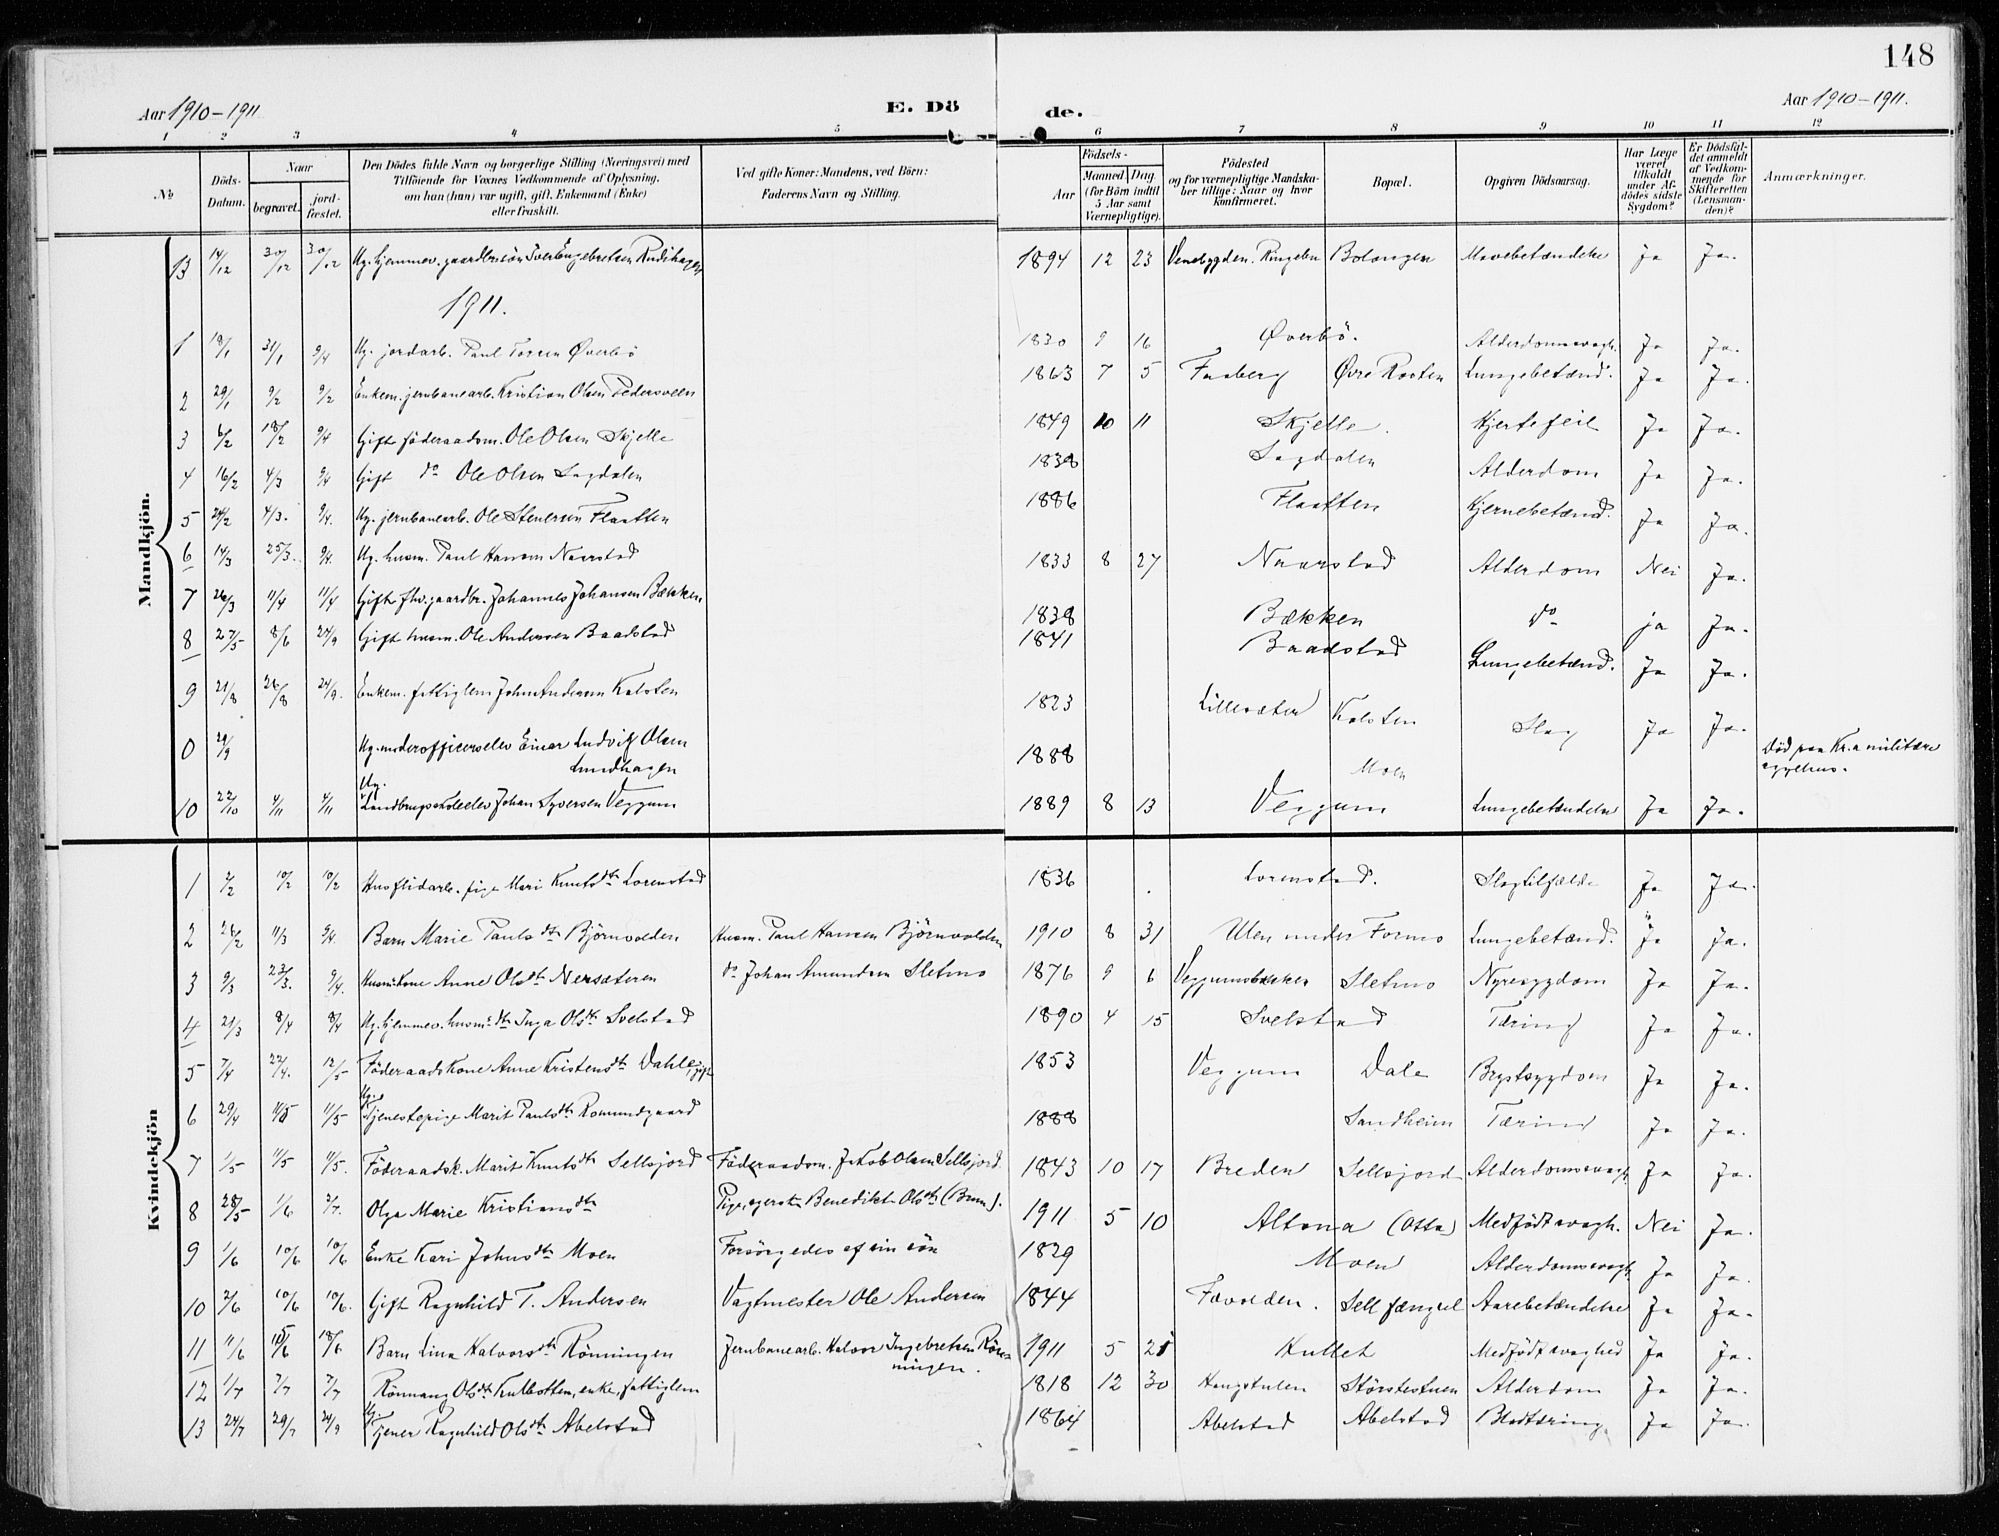 148
Aar 1910-1911
E. Dö de.
Aar 1910-1911.
1 2 3 4 5 6 7 8 9 10 11 12
No
Döds-Datum.
Naar
begravet.
jord-fæstet.
Den Dödes fulde Navn og borgerlige Stilling (Næringsvei) med
Tilföiende for Voxnes Vedkommende af Oplysning,
om han (hun) var ugift, gift, Enkemand (Enke)
eller fraskilt.
Ved gifte Koner: Mandens, ved Börn:
Faderens Navn og Stilling.
Födsels-
Aar
Maaned Dag
(for Börn indtil
5 Aar samt
Værnepligtige).
Födested
og for værnepligtige Mandska-
ber tillige: Naar og hvor
Konfirmeret.
Bopæl.
Opgiven Dödsaarsag.
Har Læge
været
tilkaldt
under Af-
dödes sidste
Sygdom?
Er Dödsfal-
det anmeldt
af Vedkom-
mende for
Skifteretten
(Lensman-
den)?
Anmærkninger.
Mandkjön.
13 14/12 30/12 30/12 Ug. hjemmev. gaardbr.sön Iver Engebretsen Rudihagen 1894 12 23 Venebygden. Ringebu Bolongen Mavebetændelse Ja Ja.
1911.
1 18/1 31/1 9/4 Ug. jordarb. Paul Øverbö 1830 9 16 Øverbö. Alderdomssvagh. Ja Ja.
2 29/1 9/2 9/2 Enkem. jernbanearb. Kristian Olsen Pedersveen 1863 7 5 Faaberg Øvre Rosten Lungebetænd. Ja Ja.
3 6/2 18/2 9/4 Gift föderaadsm. Ole Olsen Skjelle 1849 10 11 Skjelle. Hjertefeil Ja Ja.
4 16/2 4/3 9/4 Gift do Ole Olsen Sagdalen 1838 Sagdalen Alderdom Ja Ja.
5 24/2 4/3. 9/4. Ug. jernbanearb. Ole Stenersen Flaatten 1886 Flaatten Hjernebetænd. Ja Ja.
6 14/3 25/3. 9/4. Ug. husm. Paul Hansen Naarstad 1833 8 27 Naarstad Alderdom Nei Ja.
7 26/3 11/4 11/4 Gift fhv. gaardbr. Johannes Johansen Bækken 1838 Bækken do ja Ja.
8 27/5 8/6 24/9 Gift husm. Ole Andersen Baadstad 1841 Baadstad Lungebetænd. Ja Ja.
9 21/8 26/8 24/9. Enkem. fattiglem John Andersen Kolsten 1823 Lillesæter Kolsten Slag Ja Ja.
0 29/9 Ug. underofficerselev Einar Ludvig Olsen
Lundhagen 1888 Moen Död paa Kr.a militære
sygehus.
10 22/10 4/11 4/11 Ug. Landbrugsskoleelev Johan Syversen Veggum 1889 8 13 Veggum Lungebetændelse Ja Ja.
Kvindekjön
1 2/2 10/2 10/2 Husflidarb. pige Mari Knutsdtr Lorenstad 1836 Lorenstad. Slagtilfælde Ja Ja.
2 26/2 11/3 9/4. Barn Marie Paulsdtr Björnvolden Husm. Paul Hansen Björnvolden 1910 8 31 Ulen under Formo Lungebetænd. Ja Ja.
3 9/3 23/3. 9/4. Husm.kone Anne Olsdtr Nersæteren do Johan Amundsen Sletmo 1876 9 6 Veggumsbakken Sletmo Nyresygdom Ja Ja.
4 21/3 8/4 8/4 Ug. hjemmev. husm.dtr Inga Olsdtr Svelstad 1890 4 15 Svelstad Tæring Ja Ja.
5 7/4 22/4. 12/5 Föderaadskone Anne Kristensdtr Dahle, gift 1853 Veggum Dale Brystsygdom Ja Ja.
6 29/4 11/5 11/5 Ug. Tjenestepige Marit Paulsdtr Romundgaard 1888 Sandheim Tæring Ja Ja.
7 1/5 11/5 11/5. Föderaadsk. Marit Knutsdtr Sellsjord Föderaadsm. Jakob Olsen Sellsjord. 1843 10 17 Breden Sellsjord Alderdomssvagh. Ja Ja.
8 28/5 1/6 2/7. Olga Marie Kristiansdtr Pige, Benedikte Olsdtr (Brun). 1911 5 10 Altona (Otta) Medfödt svagh. Nei Ja.
9 1/6 10/6 10/6 Enke Kari Johnsdtr Moen Forsörgedes af sin sön 1829 Moen Alderdomssvagh. Ja Ja.
10 2/6 10/6 10/6. Gift Ragnhild T. Andersen Vagtmester Ole Andersen 1844 Favolden. Sell fængsel Aarebetændelse Ja Ja.
11 11/6 18/6 Barn Lina Halvorsdtr Rönningen Jernbanearb. Halvor Ingebretsen Rön-
ningen. 1911 5 Kullet Medfödt svaghed Ja Ja.
12 1/7 7/7 7/7 Rönnaug Olsdtr Kulbotten, enke, fattiglem 1818 12 30 Haugstulen Störstestuen Alderdom Ja Ja.
13 24/7 29/7 24/9 Ug. Tjener Ragnhild Olsdtr Abelstad 1864 Abelstad Abelstad Ja Ja.